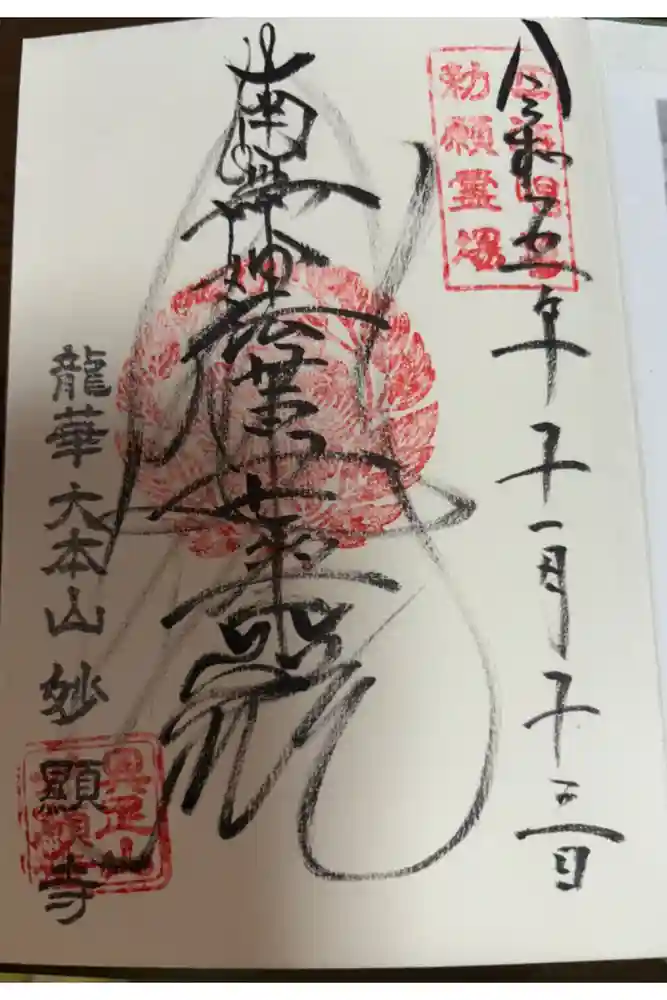 令和五年十一月十三日
四海唱導
勅願霊場
南無妙法蓮華経
龍華 大本山 妙顯寺
具足山